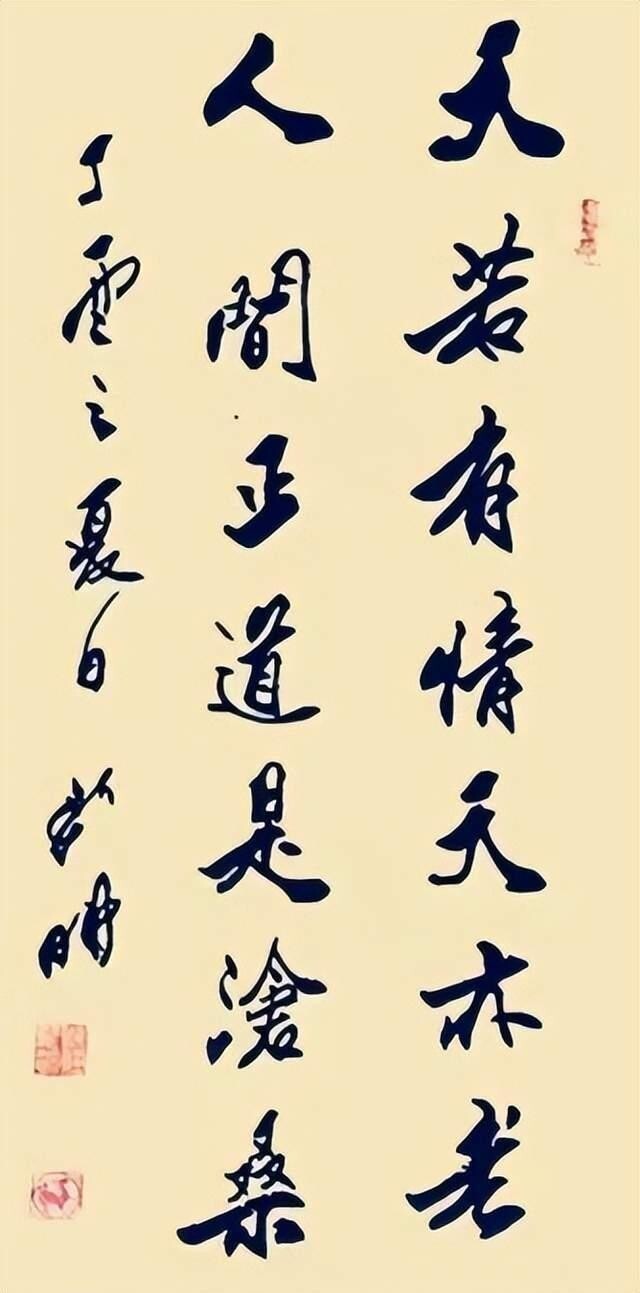 天若有情天亦老
人間正道是滄桑
丁之夏日